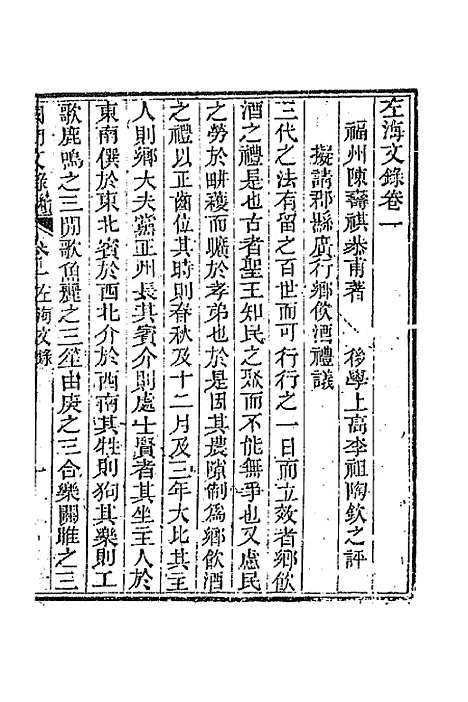 左海文錄卷一
福州陳壽祺恭甫著　後學上高李祖陶欽之評
擬請郡縣廣行鄉飲酒禮議
三代之法有留之百世而可行行之一日而立效者鄉飲
酒之禮是也古者聖王知民之聚而不能無爭也又慮民
之勞於畊穫而曠於孝弟也於是因其農隙制為鄉飲酒
之禮以正齒位其時則春秋及十二月及三年大比其主
人則鄉大夫黨正州長其賓介則處士賢者其坐主人於
東南僎於東北賓於西北介於西南其牲則狗其樂則工
歌鹿鳴之三閒歌魚麗之三笙由庚之三合樂關雎之三
國朝文錄續編　卷一左海文錄　一